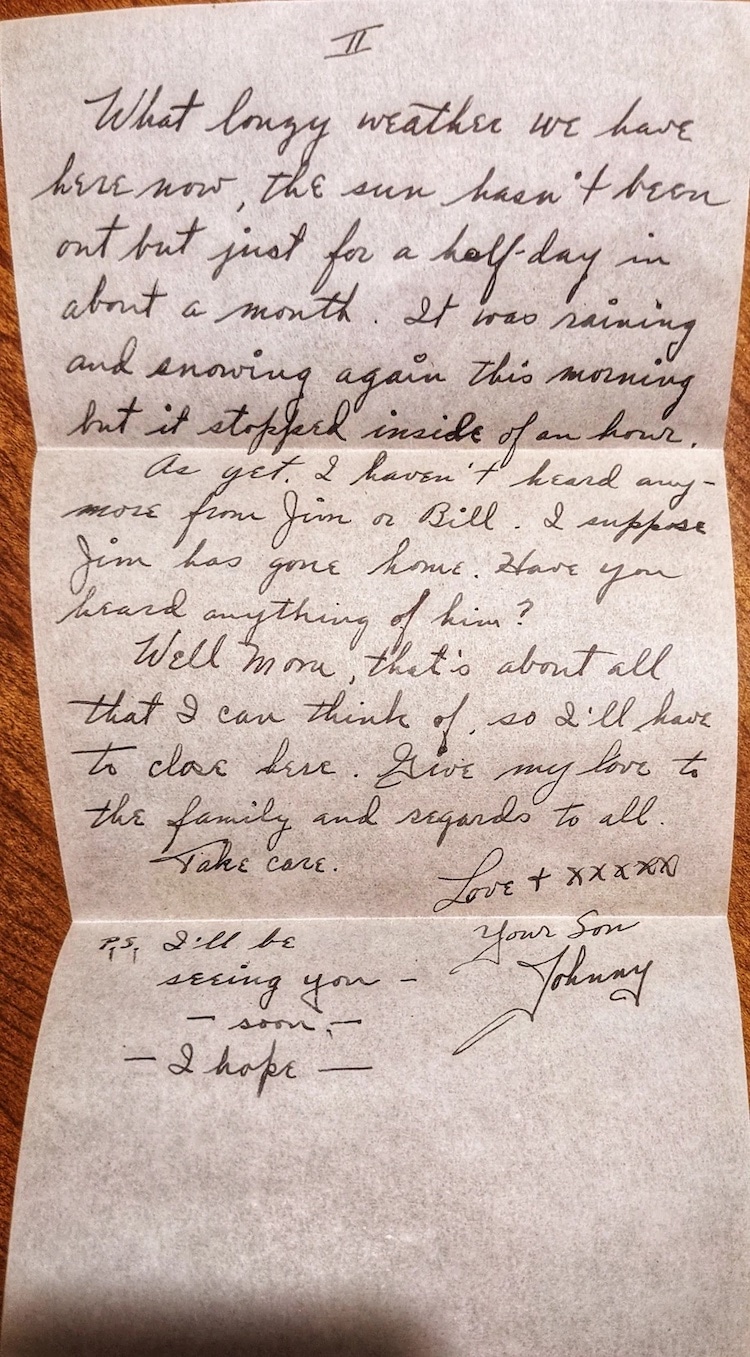 II
What longy weather we have
here now, the sun hasn't been
out but just for a half-day in
about a month. It was raining
and snowing again this morning
but it stopped inside of an hour.
As yet, I haven't heard any-
more from Jim or Bill. I suppose
Jim has gone home. Have you
heard anything of him?
Well Mom, that's about all
that I can think of, so I'll have
to close here. Give my love to
the family and regards to all.
Take care.
Love + xxxxx
Your Son
Johnny
P.S. I'll be
seeing you -
- soon, -
- I hope -